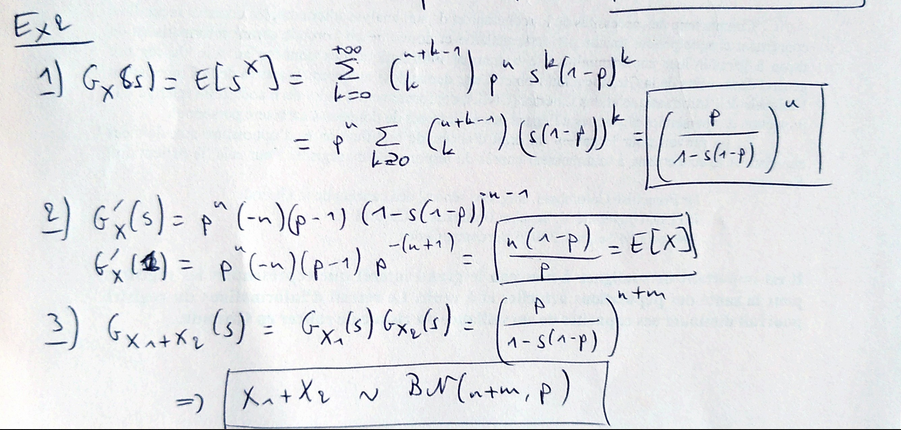 Ex2
1) G_X(s) = E[s^X] = \sum_{k=0}^{+\infty} \binom{n+k-1}{k} p^n s^k (1-p)^k
= p^n \sum_{k \geq 0} \binom{n+k-1}{k} (s(1-p))^k = \left( \frac{p}{1-s(1-p)} \right)^n
2) G'_X(s) = p^n (-n)(p-1) (1-s(1-p))^{-n-1}
G'_X(1) = p^n (-n)(p-1) p^{-(n+1)} = \frac{n(1-p)}{p} = E[X]
3) G_{X_1+X_2}(s) = G_{X_1}(s) G_{X_2}(s) = \left( \frac{p}{1-s(1-p)} \right)^{n+m}
=> X_1+X_2 ~ BN(n+m, p)